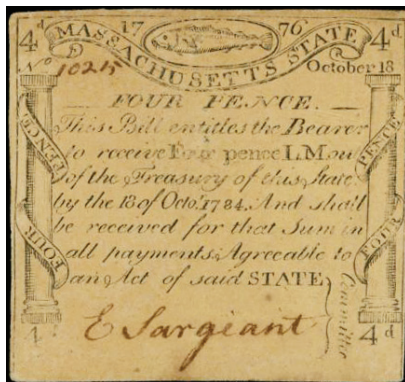 4d 17 76 4d
MASSACHUSETTS STATE
No 10245 October 18
FOUR PENCE.
This Bill entitles the Bearer
to receive Four pence L.M. out
of the Treasury of this State
by the 18 of Octo. 1784. And shall
be received for that Sum in
all payments, Agreeable to
an Act of said STATE
E Sargeant
Committee
PENCE
FOUR
PENCE
FOUR
4d